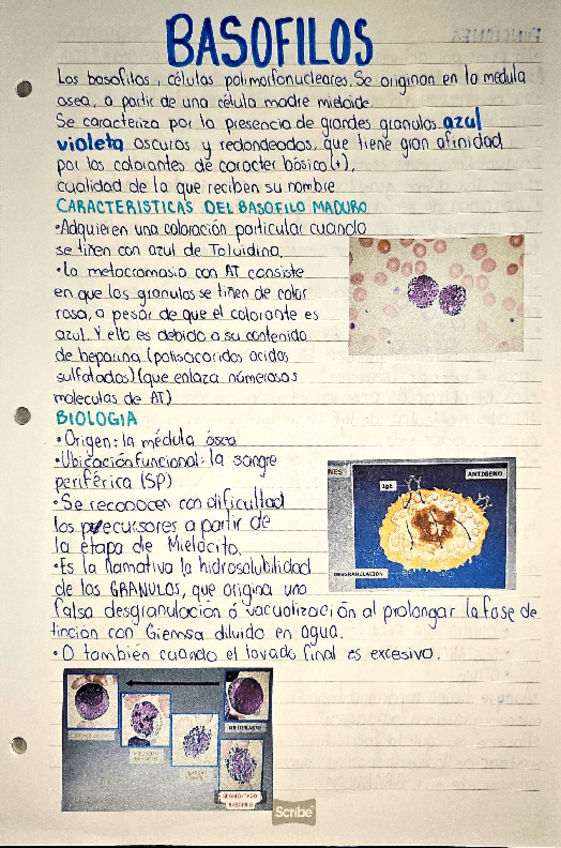 BASOFILOS
Los basofilos, células polimorfonucleares. Se originan en la medula
osea, a partir de una célula madre mieloide.
Se caracteriza por la presencia de grandes granulos azul
violeta oscuros y redondeados, que tiene gran afinidad
por los colorantes de caracter básico (+),
cualidad de la que reciben su nombre
CARACTERISTICAS DEL BASOFILO MADURO
•Adquieren una coloración particular cuando
se tiñen con azul de Toluidina.
•La metacromasia con AT consiste
en que los granulos se tiñen de color
rosa, a pesar de que el colorante es
azul. Y ello es debido a su contenido
de heparina (polisacaridos acidos
sulfatados) (que enlaza númerosas
moleculas de AT)
BIOLOGIA
•Origen: la médula ósea
•Ubicación funcional: la sangre
periférica (SP)
•Se reconocen con dificultad
los precursores a partir de
la etapa de Mielocito.
•Es la llamativa la hidrosolubilidad
de los GRANULOS, que origina una
falsa desgranulación ó vacuolización al prolongar la fase de
tinción con Giemsa diluido en agua.
•O también cuando el lavado final es excesivo.
NES
ANTIGENO
IgE
DESGRANULACION
MIELOBLASTO
SEGMENTADO
BASOFILO
Scribe